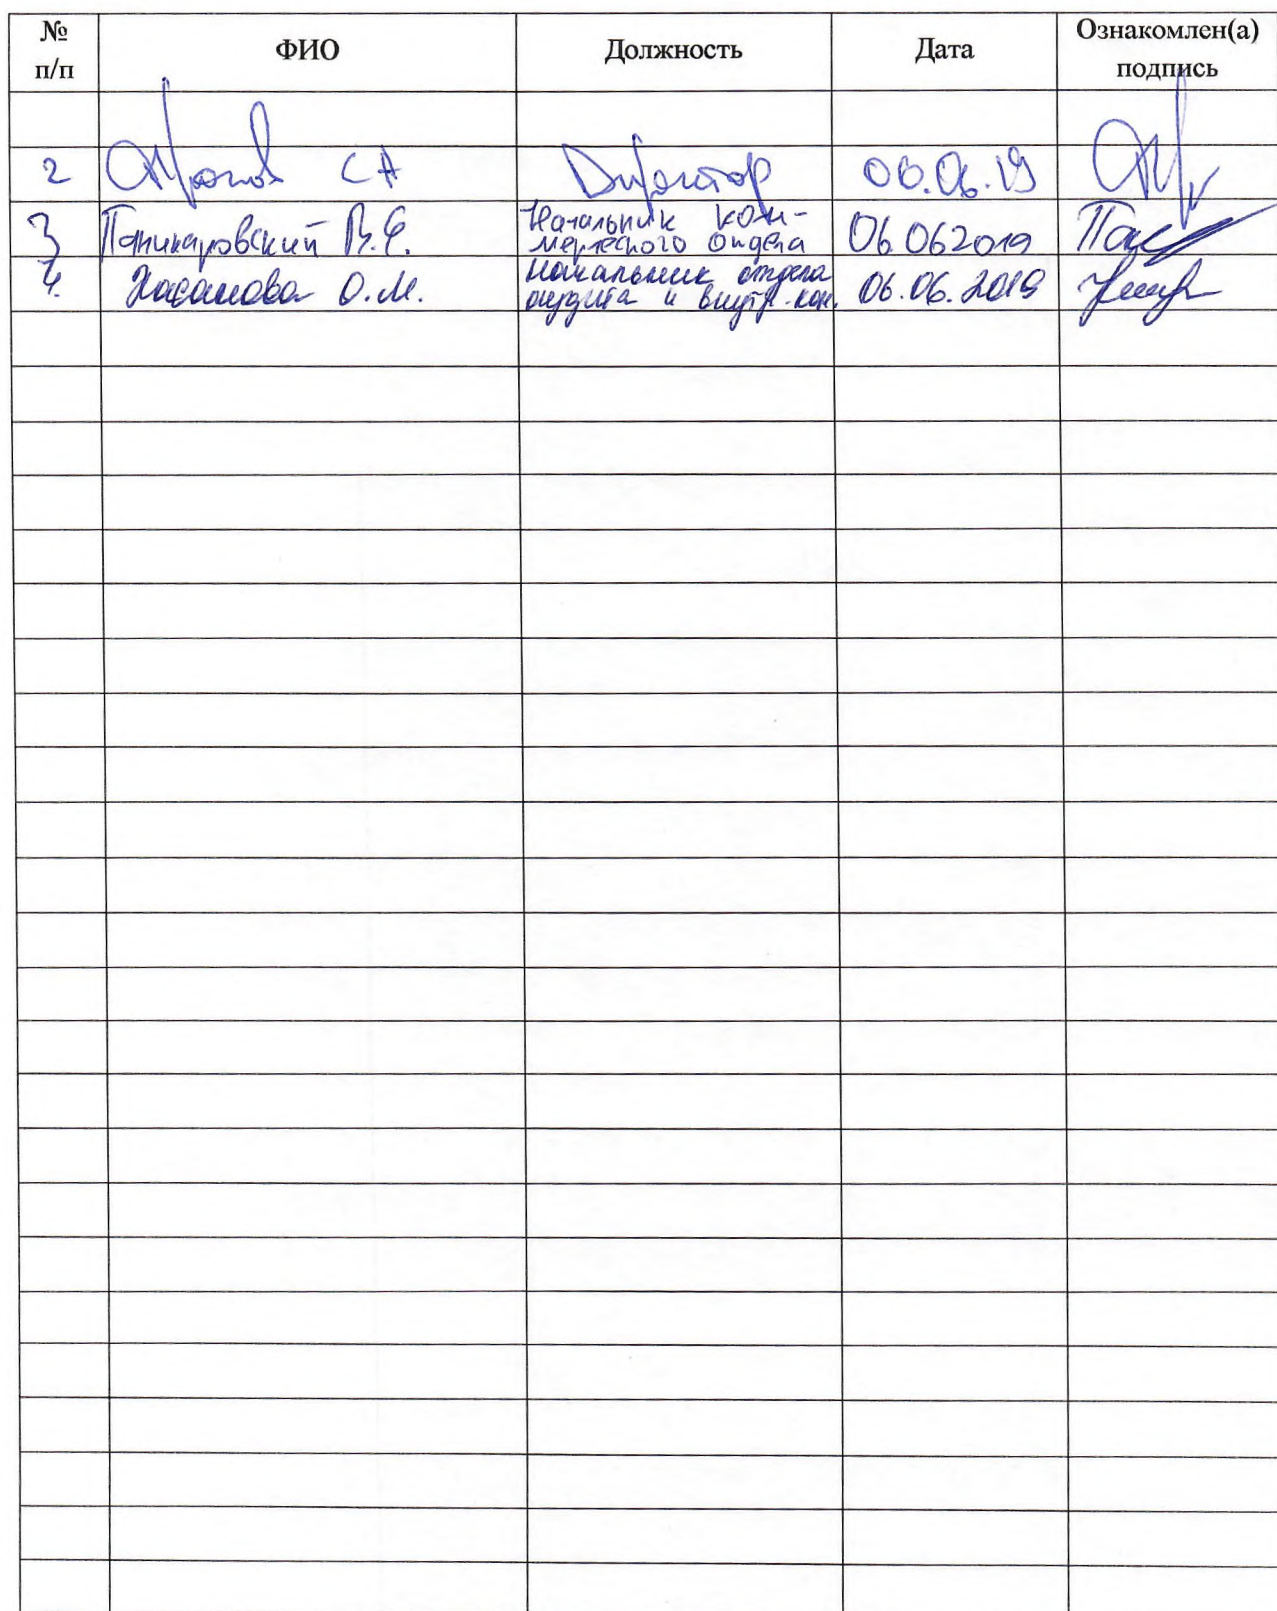 № п/п ФИО Должность Дата Ознакомлен(а) подпись
2 СА Директор 06.06.19
3 Паникаровский В.Е. Начальник ком-
мерческого отдела 06.06 2019
4. Хасанова О.М. Начальник отдела
аудита и внутр. кон. 06.06.2019